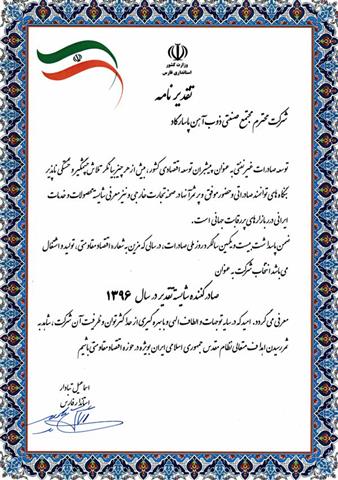 وزارت کشور
استانداری فارس
تقدیر نامه
شرکت محترم مجتمع صنعتی ذوب آهن پاسارگاد
توسعه صادرات غیرنفتی به عنوان پیشران توسعه اقتصادی کشور، بیش از هر چیز بیانگر تلاش چشمگیر و خستگی ناپذیر
بنگاه های توانمند صادراتی و حضور موفق و پرثمر آنها در صحنه تجارت خارجی و نیز معرفی شایسته محصولات و خدمات
ایرانی در بازارهای پر رقابت جهانی است.
ضمن پاسداشت بیست و یکمین سالگرد روز ملی صادرات، در سالی که مزین به شعار اقتصاد مقاومتی، تولید و اشتغال
می باشد انتخاب شرکت به عنوان
صادرکننده شایسته تقدیر در سال ۱۳۹۶
معرفی می گردد. امید که در سایه توجهات و الطاف الهی و با بهره گیری از حداکثر توان و ظرفیت آن شرکت، شاهد به
ثمر رسیدن اهداف متعالی نظام مقدس جمهوری اسلامی ایران بویژه در حوزه اقتصاد مقاومتی باشیم
اسماعیل تبادار
استاندار فارس